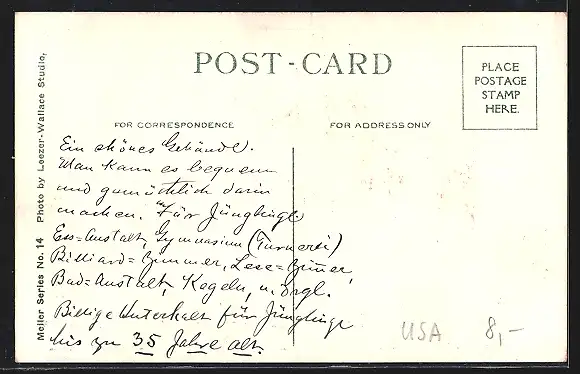 POST-CARD
PLACE
POSTAGE
STAMP
HERE.
FOR CORRESPONDENCE
FOR ADDRESS ONLY
Ein schönes Gebäude.
Man kann es bequem
und gemütlich darin
machen. Für Jünglinge
Ess=Anstalt, Gymnasium (Turnerei)
Billiard=Zimmer, Lese=Zimmer,
Bad=Anstalt, Kegeln, u. drgl.
Billige Unterhalt für Jünglinge
bis zu 35 Jahre alt.
USA 8,-
Mellor Series No. 14 Photo by Leezer-Wallace Studio,